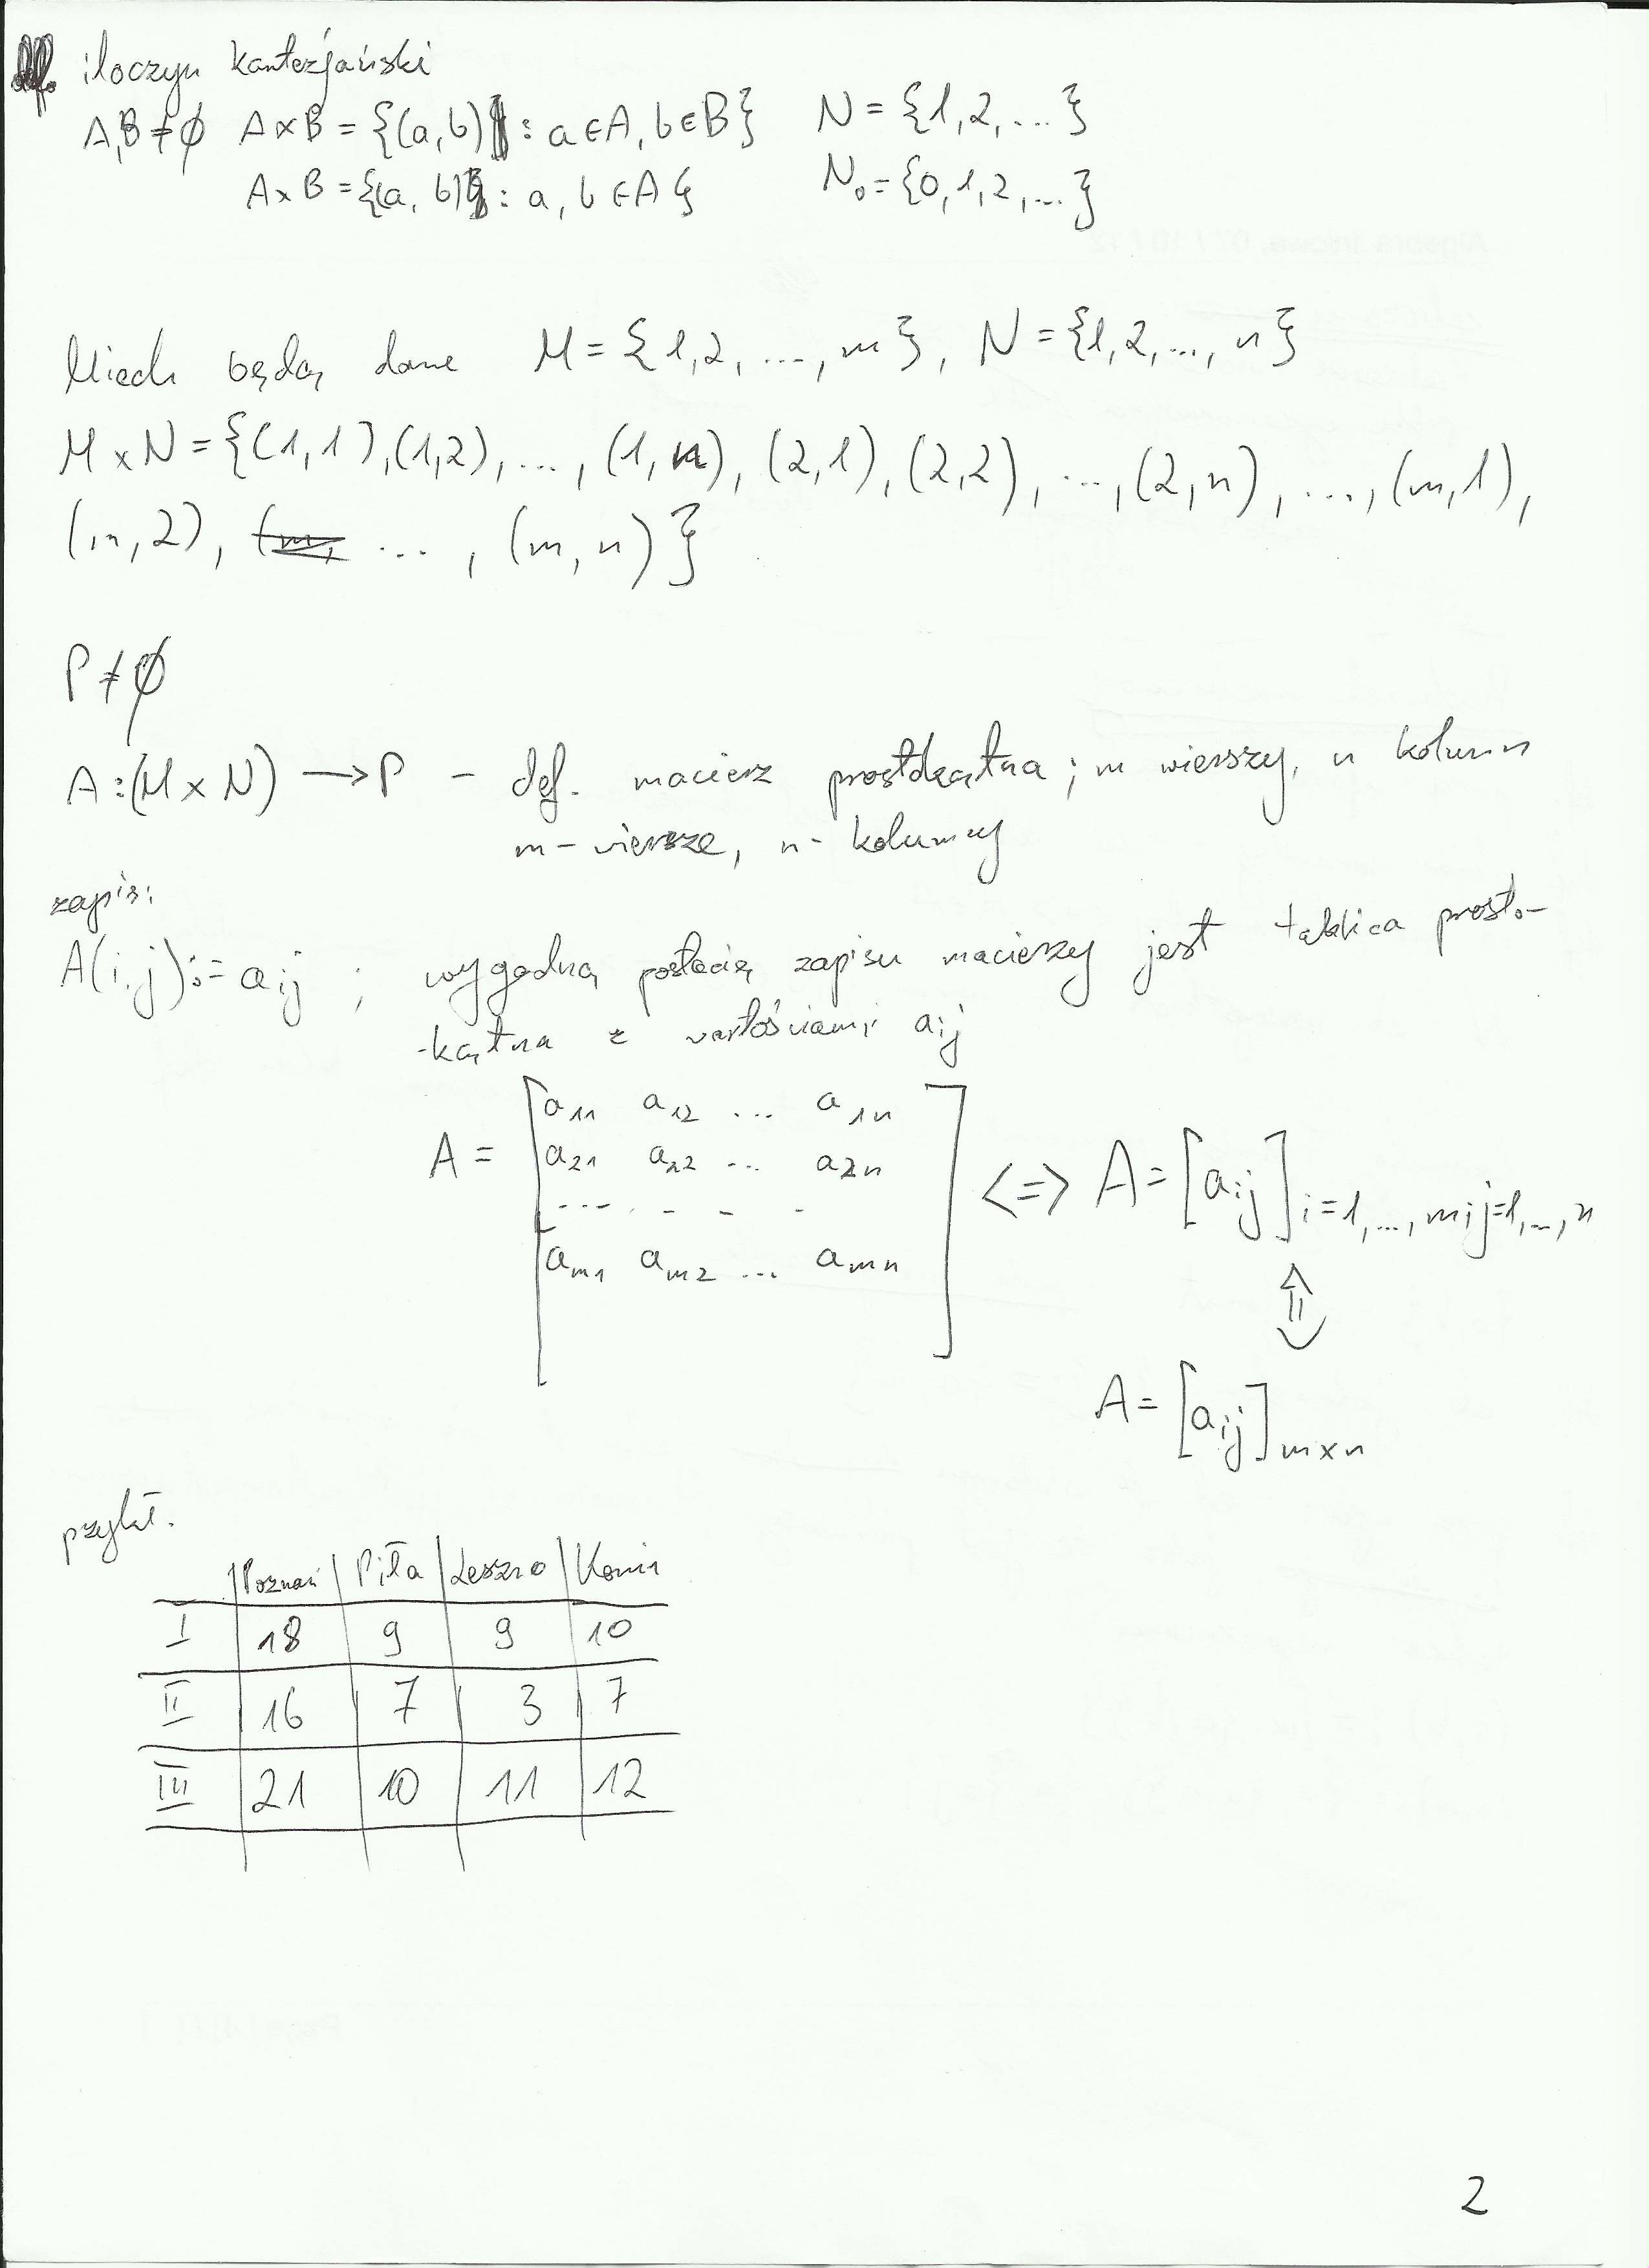 def. iloczyn kartezjański
A,B ≠ ∅ A×B = {(a,b) : a∈A, b∈B} N = {1,2,...}
A×B = {(a,b) : a, b∈A} N₀ = {0,1,2,...}
Niech będą dane M = {1,2,...,m}, N = {1,2,...,n}
M×N = {(1,1),(1,2),...,(1,n),(2,1),(2,2),...,(2,n),...,(m,1),
(m,2), ..., (m,n)}
P ≠ ∅
A:(M×N) → P – def. macierz prostokątna; m wierszy, n kolumn
m – wiersze, n - kolumny
zapis:
A(i,j) := aij ; wygodną postacią zapisu macierzy jest tablica prosto-
-kątna z wartościami aij
A = [a11 a12 ... a1n
a21 a22 ... a2n
--- - - -
am1 am2 ... amn] <=> A = [aij] i=1,...,m; j=1,...,n
⇕
A = [aij] m×n
przykł.
Poznań | Piła | Leszno | Konin
I 18 9 9 10
II 16 7 3 7
III 21 10 11 12
2